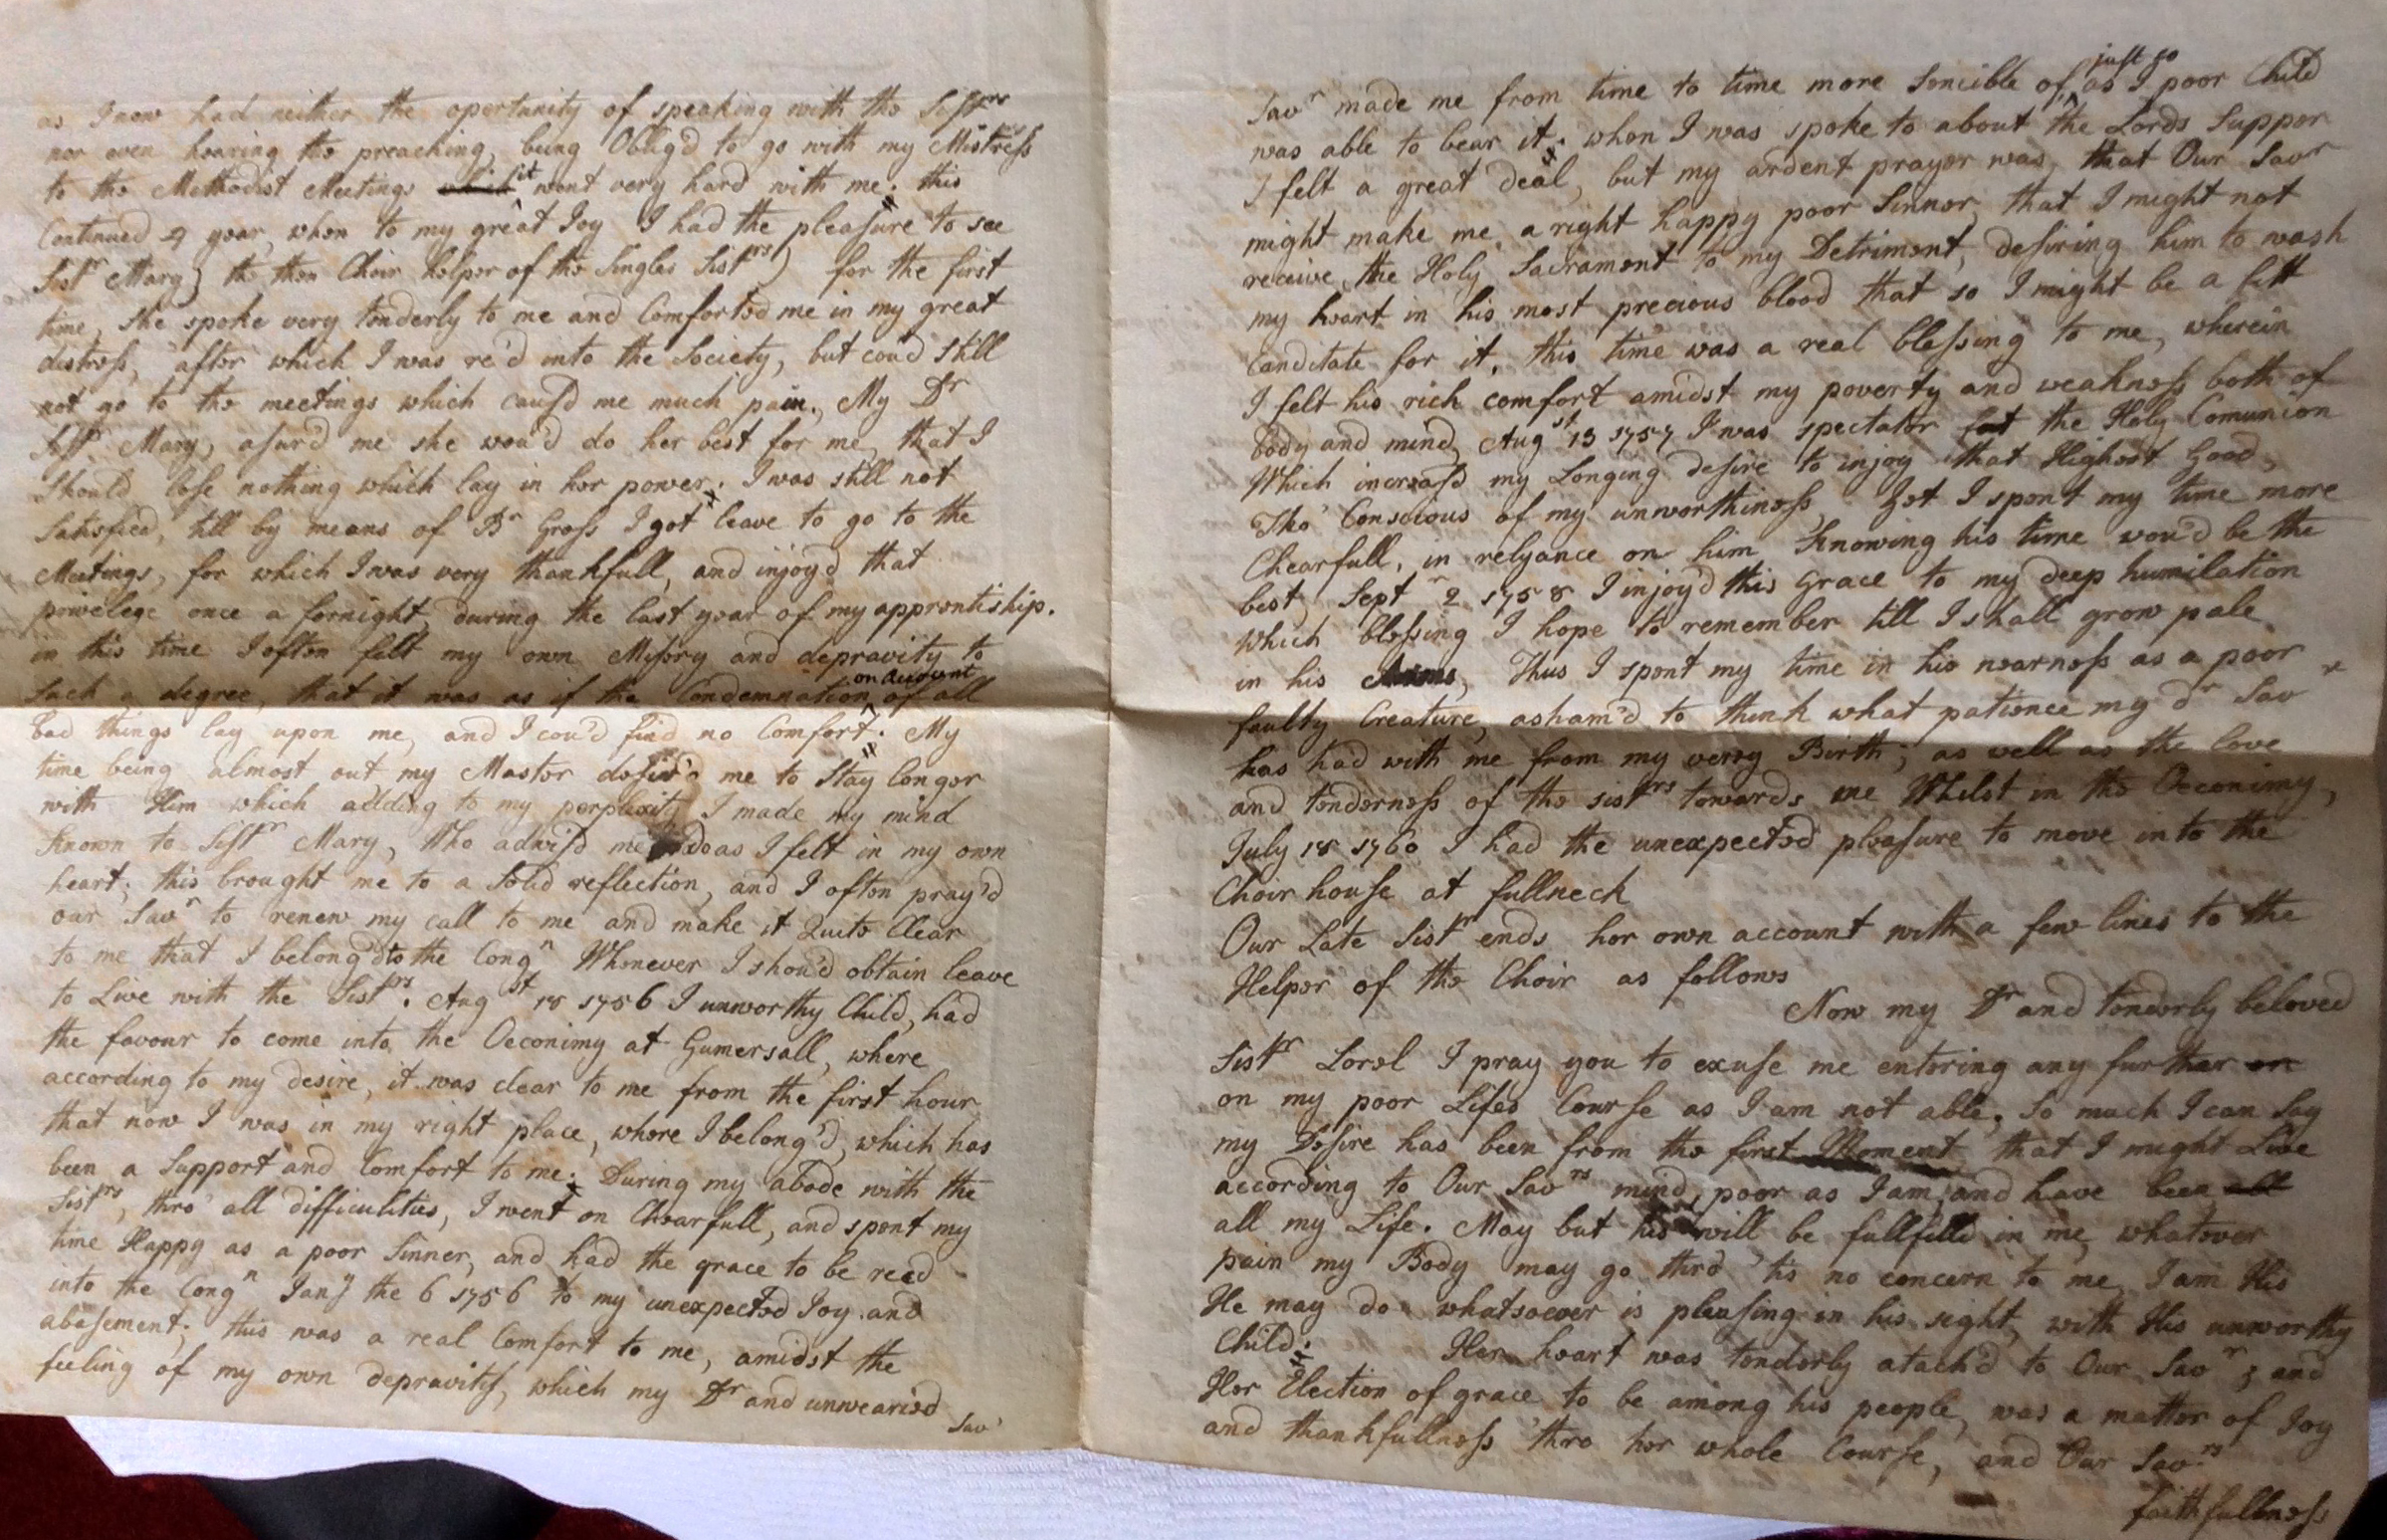 as I now had neither the oportunity of speaking with the Sistrs
nor even hearing the preaching, being Oblig'd to go with my Mistress
to the Methodist Meetings it went very hard with me. this
Continued a year, when to my great Joy I had the pleasure to see
Sistr Mary, the then Choir helper of the Singles Sistrs) for the first
time, she spoke very tenderly to me and Comforted me in my great
distress, after which I was re'd into the Society, but cou'd still
not go to the meetings which caus'd me much pain. My Dr
Sistr Mary, asur'd me she wou'd do her best for me, that I
Should lose nothing which lay in her power. I was still not
Satisfied, till by means of Br Gross I got leave to go to the
Meetings, for which I was very thankfull, and injoy'd that
privelege once a fornight, during the last year of my apprentiship.
in this time I often felt my own Misery and depravity to
Such a degree, that it was as if the Condemnation on account of all
bad things lay upon me, and I cou'd find no Comfort. My
time being almost out my Master desir'd me to Stay longer
with Him which adding to my perplexity I made my mind
Known to Sistr Mary, Who advis'd me to do as I felt in my own
heart; this brought me to a Solid reflection, and I often pray'd
our Savr to renew my call to me and make it Quite Clear
to me that I belong'd to the Congn Whenever I shou'd obtain leave
to Live with the Sistrs. Augst 18 1756 I unworthy Child, had
the favour to come into the Oeconimy at Gumersall, where
according to my desire, it was clear to me from the first hour
that now I was in my right place, where I belong'd, which has
been a Support and Comfort to me. During my abode with the
Sistrs, thro' all difficulities, I went on Chearfull, and spent my
time Happy as a poor Sinner, and had the grace to be reced
into the Congn Jany the 6 1756 to my unexpected Joy and
abasement; this was a real Comfort to me, amidst the
feeling of my own depravitys, which my Dr and unwearied
Savr
Savr made me from time to time more Sencible of, just so as I poor Child
was able to bear it. when I was spoke to about the Lords Supper
I felt a great deal, but my ardent prayer was, that Our Savr
might make me, a right happy poor Sinner, that I might not
receive, the Holy Sacrament to my Detriment, desiring him to wash
my heart in his most precious blood that so I might be a fitt
Canditate for it, this time was a real blessing to me, wherein
I felt his rich comfort amidst my poverty and weakness both of
body and mind, Augst 13 1757 I was spectator at the Holy Comunion
Which increas'd my Longing desire to injoy that Highest Good,
Tho' Conscious of my unworthiness, Yet I spent my time more
Chearfull, in relyance on him, Knowing his time wou'd be the
best, Septr 2 1758 I injoy'd this Grace to my deep humilation
which blessing I hope to remember till I shall grow pale
in his Arms, Thus I spent my time in his nearness as a poor
faulty Creature, asham'd to think what patience my dr Savr
has had with me from my verry Birth; as well as the love
and tenderness of the sistrs towards me Whilst in the Oeconimy,
July 18 1760 I had the unexpected pleasure to move into the
Choir house at fullneck
Our Late Sistr ends her own account with a few lines to the
Helper of the Choir as follows
Now my Dr and tenderly beloved
Sistr Lorel I pray you to excuse me entering any further on
on my poor Lifes Course as I am not able. So much I can Say
my Desire has been from the first Moment, that I might Live
according to Our Savrs mind, poor as I am, and have been all
all my Life. May but his will be fullfilld in me, whatever
pain my Body may go thro' 'tis no concern to me, I am His
He may do whatsoever is pleasing in his sight, with His unworthy
Child. Her heart was tenderly atach'd to Our Savr; and
Her Election of grace to be among his people, was a matter of Joy
and thankfullness thro her whole Course, and Our Savrs
faithfullness